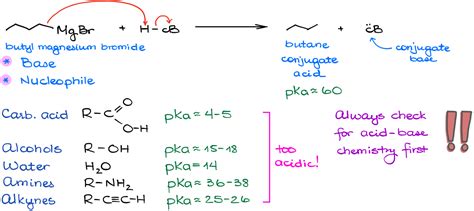 MgBr + H-B → + :B
butyl magnesium bromide butane conjugate base
* Base conjugate acid
* Nucleophile pKa ≈ 60
Carb. acid R-C O O-H pKa ≈ 4-5
Alcohols R-OH pKa ≈ 15-18
Water H₂O pKa = 14
Amines R-NH₂ pKa ≈ 36-38
Alkynes R-C≡C-H pKa ≈ 25-26
too acidic!
Always check
for acid-base
chemistry first !!